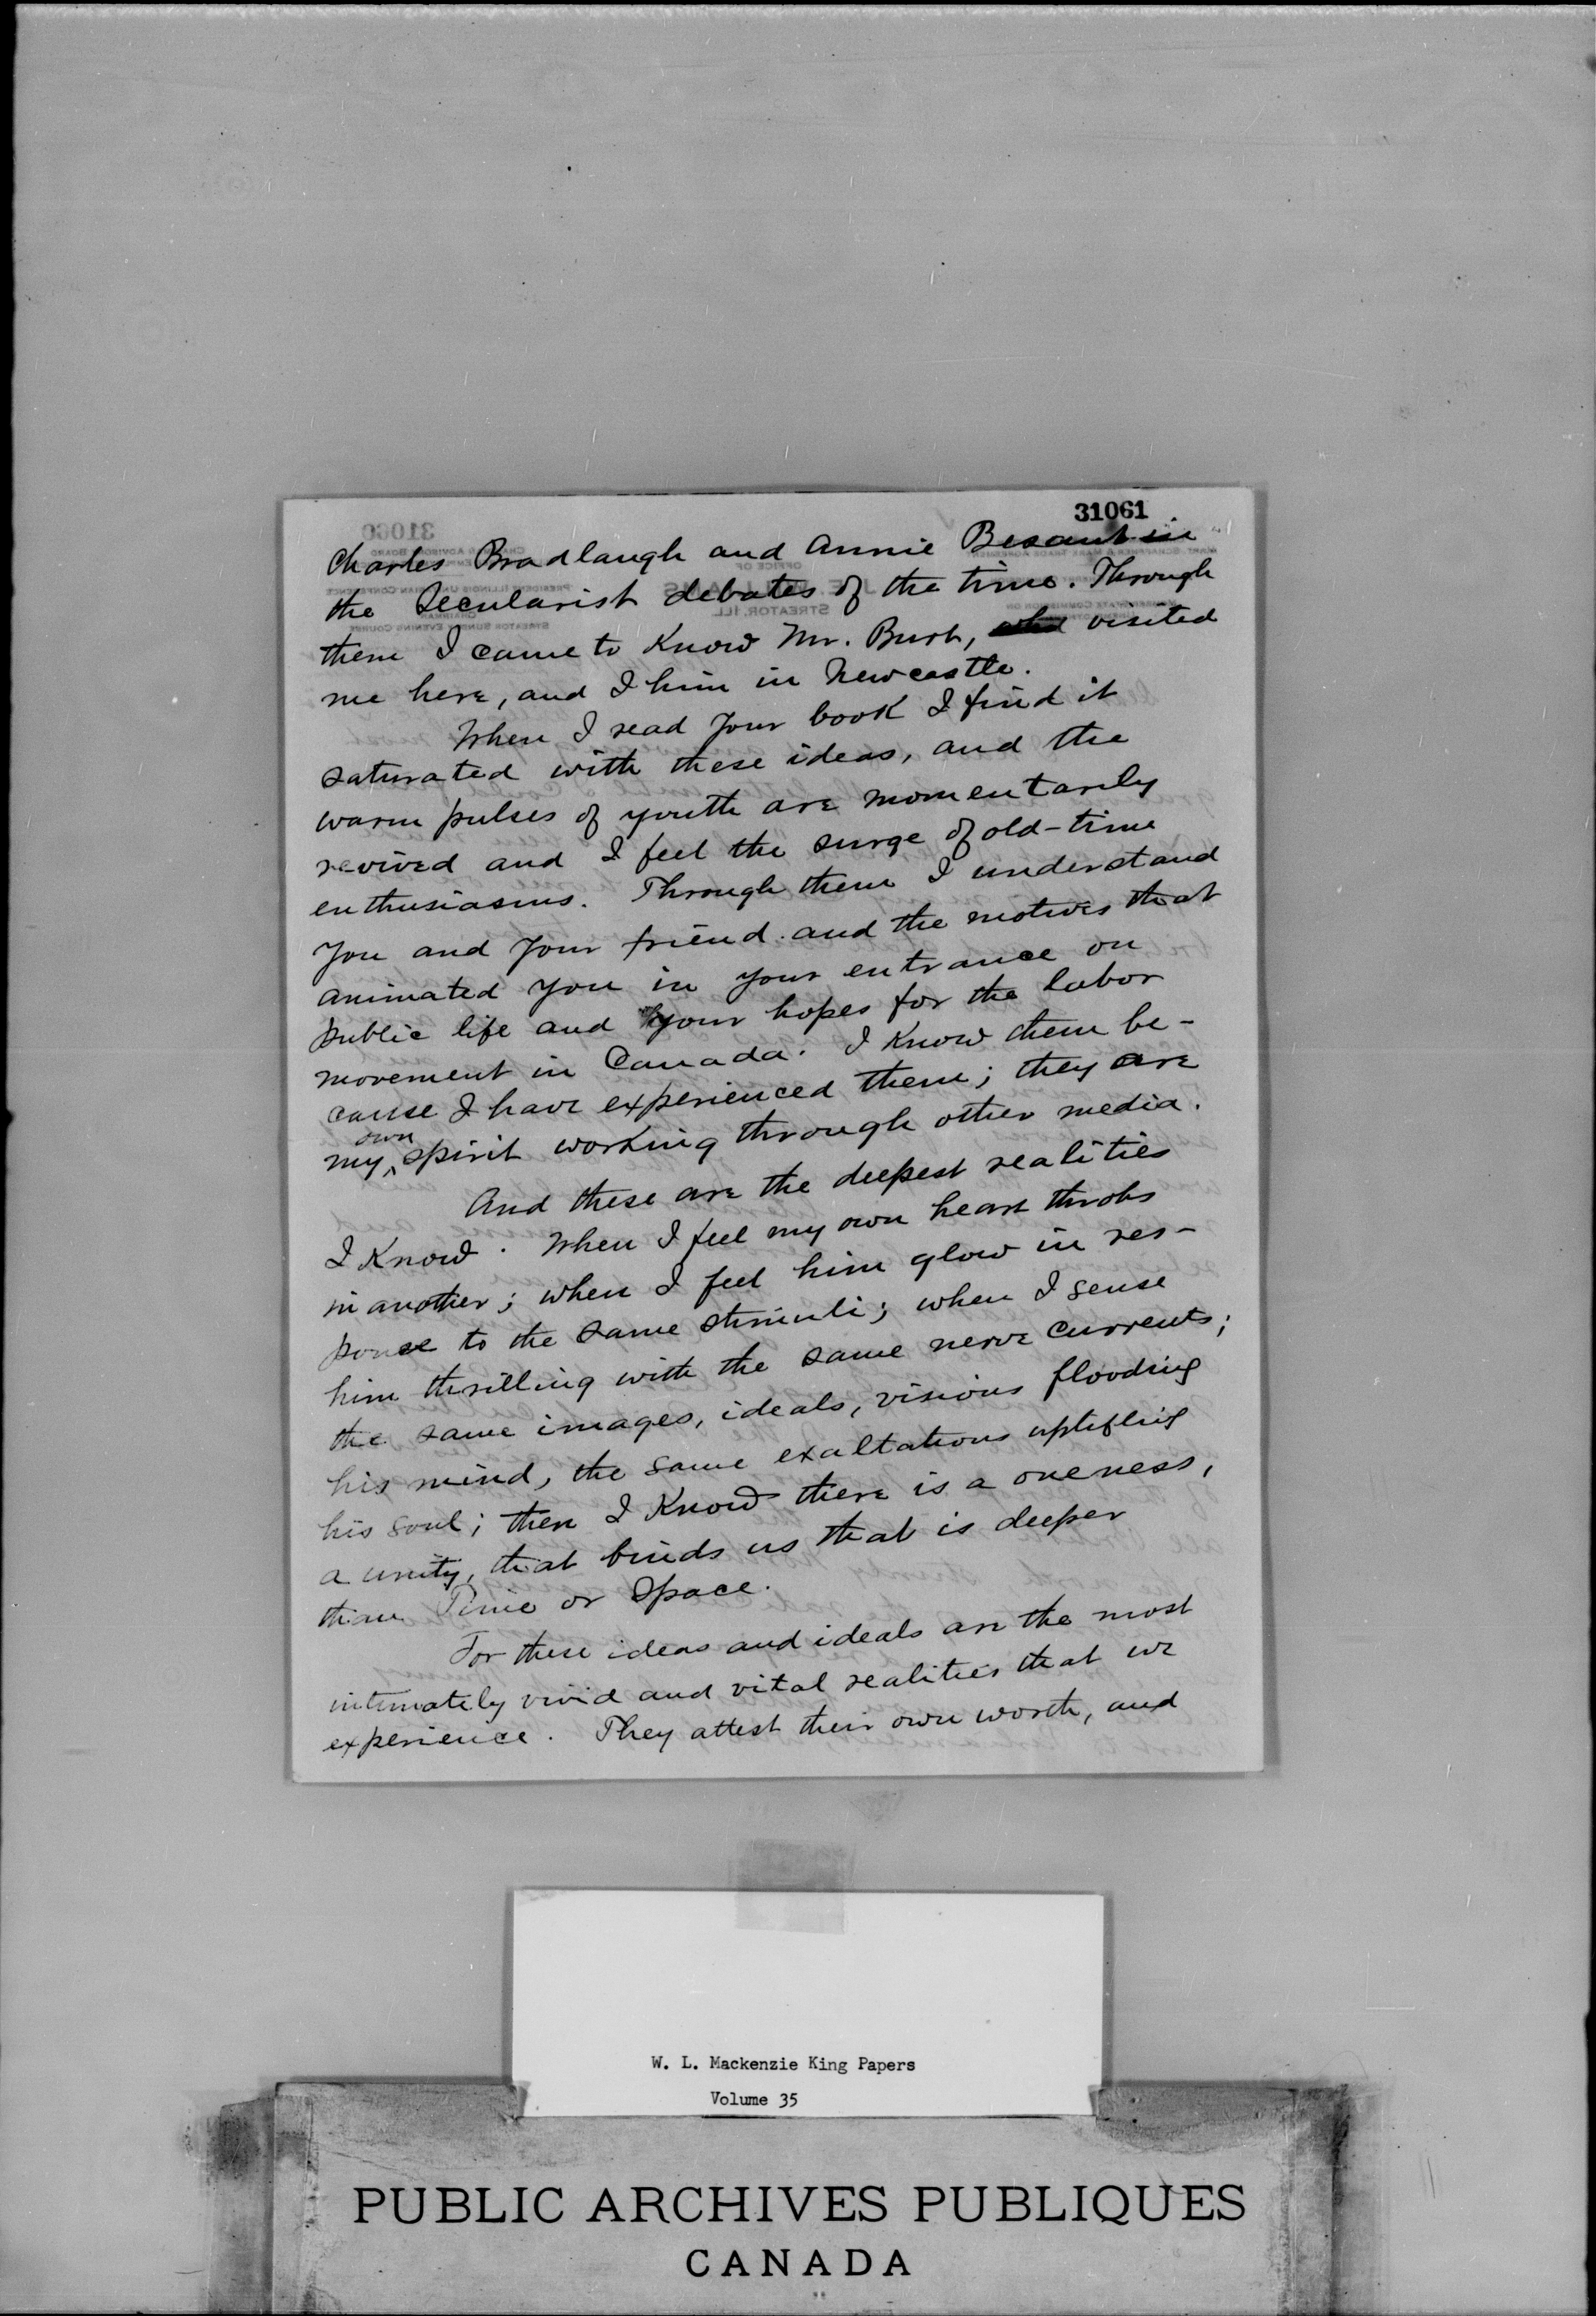 31061
Charles Bradlaugh and Annie Besant in
the Secularist debates of the time. Through
them I came to know Mr. Burt, who visited
me here, and I him in Newcastle.
When I read your book I find it
saturated with these ideas, and the
warm pulses of youth are momentarily
revived and I feel the surge of old-time
enthusiasms. Through them I understand
you and your friend and the motives that
animated you in your entrance on
public life and your hopes for the labor
movement in Canada. I know them be-
cause I have experienced them; they are
my own spirit working through other media.
And these are the deepest realities
I know. When I feel my own heart throbs
in another; when I feel him glow in res-
ponse to the same stimuli; when I sense
him thrilling with the same nerve currents;
the same images, ideals, visions flooding
his mind, the same exaltations uplifting
his soul; then I know there is a oneness,
a unity, that binds us that is deeper
than Time or Space.
For these ideas and ideals are the most
intimately vivid and vital realities that we
experience. They attest their own worth, and
W. L. Mackenzie King Papers
Volume 35
PUBLIC ARCHIVES PUBLIQUES
CANADA